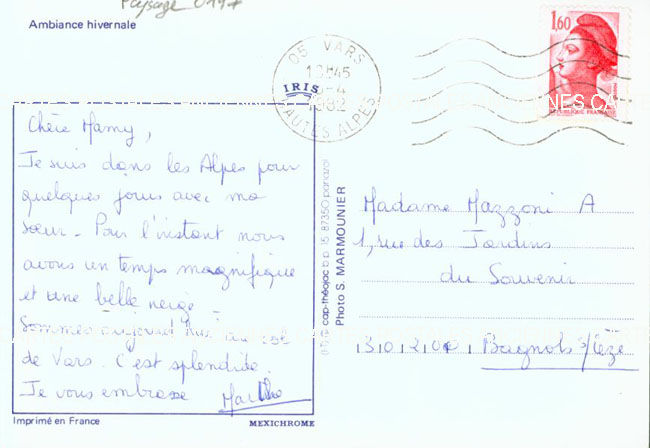 Paysage
Ambiance hivernale
1,60
REPUBLIQUE FRANÇAISE
05 VARS
1982
HAUTES ALPES
IRIS
Chère Mamy,
Je suis dans les Alpes pour
quelques jours avec ma
sœur. Pour l'instant nous
avons un temps magnifique
et une belle neige.
Sommes aujourd'hui au col
de Vars. C'est splendide.
Je vous embrasse Marthe
Imprimé en France
MEXICHROME
cap-théojac b.p. 15 87350 panazol
Photo S. MARMOUNIER
Madame Mazzoni A
1, rue des Jardins
du Souvenir
30200 Bagnols s/Cèze